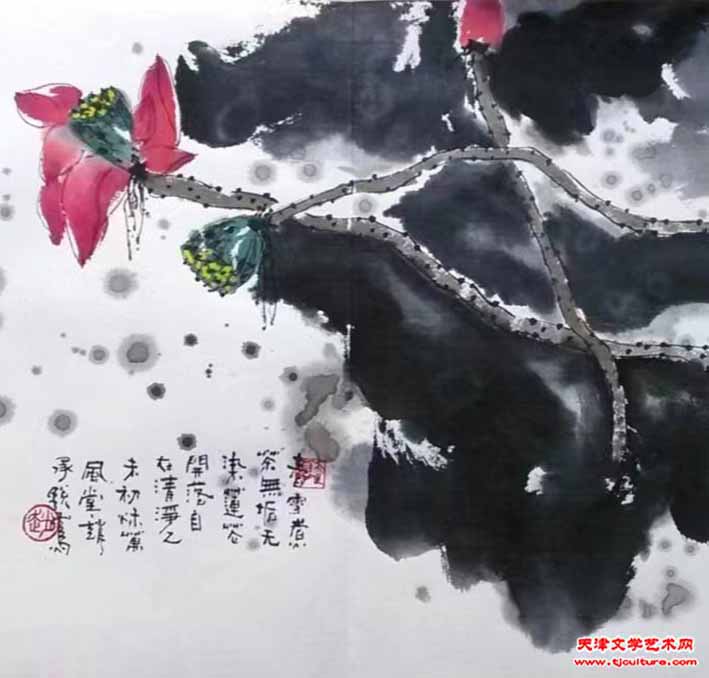 雪煮
茶無垢无
染蓮花
開落自
在清淨乙
未初秋萬
風堂趙
承
天津文学艺术网
www.tjculture.com